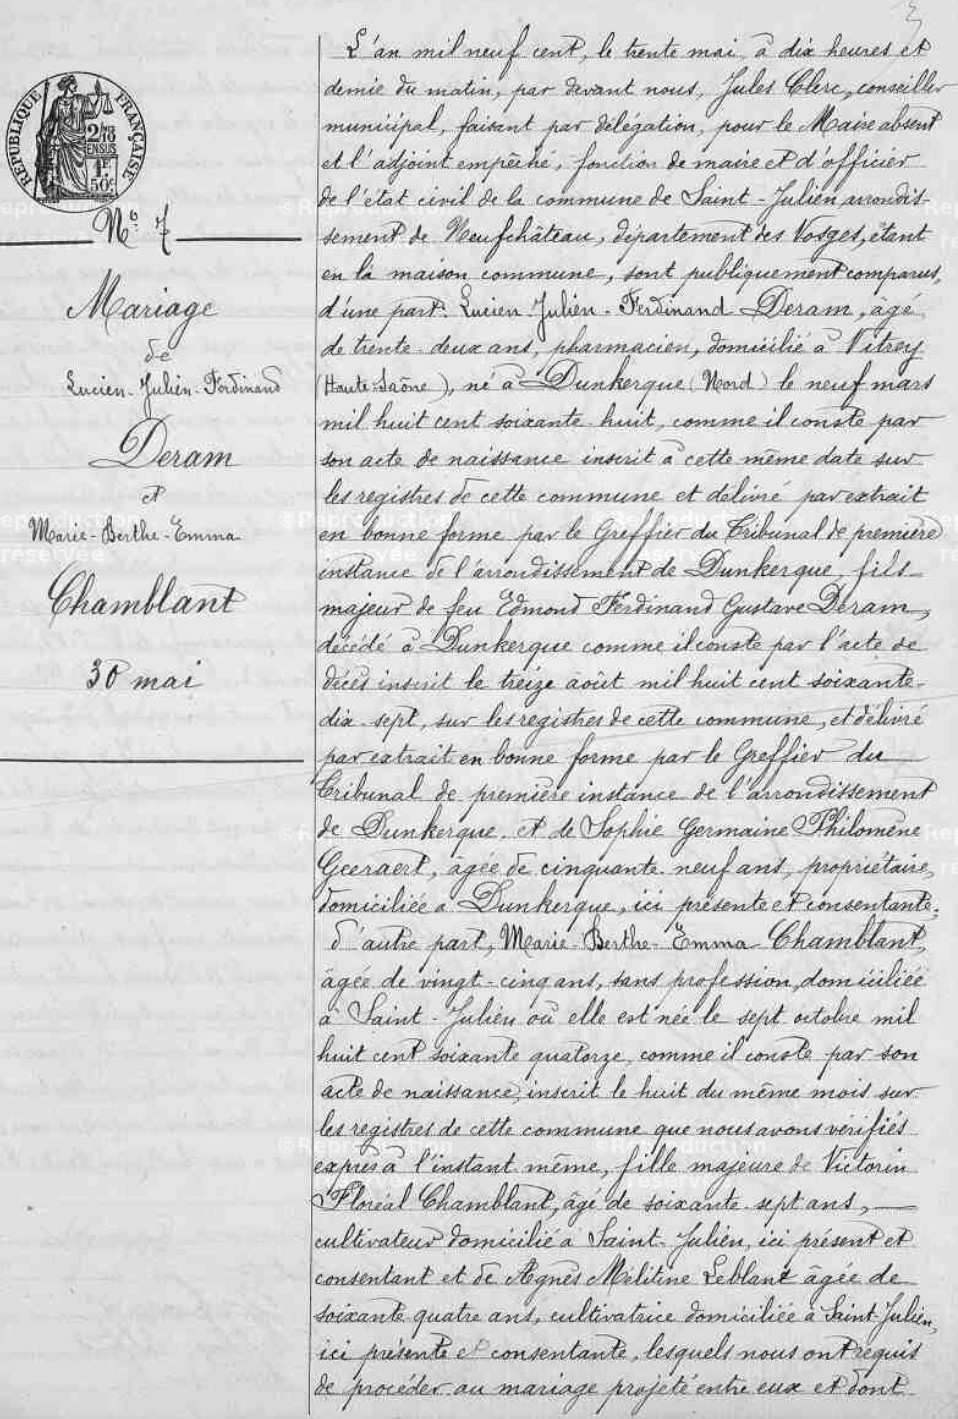 3
RÉPUBLIQUE FRANÇAISE
2/10 EN SUS
1F 50c
N.° 7
Mariage
de
Lucien-Julien-Ferdinand
Deram
et
Marie-Berthe-Emma
Chamblant
30 mai
L'an mil neuf cent, le trente mai, à dix heures et
demie du matin, par devant nous, Jules Clerc, conseiller
municipal, faisant par délégation, pour le Maire absent
et l'adjoint empêché, fonction de maire et d'officier
de l'état civil de la commune de Saint-Julien arrondis-
sement de Neufchâteau, département des Vosges, étant
en la maison commune, sont publiquement comparus,
d'une part: Lucien-Julien-Ferdinand Deram, âgé
de trente-deux ans, pharmacien, domicilié à Vitrey
(Haute-Saône), né à Dunkerque (Nord) le neuf mars
mil huit cent soixante huit, comme il conste par
son acte de naissance inscrit à cette même date sur
les registres de cette commune et délivré par extrait
en bonne forme par le Greffier du Tribunal de première
instance de l'arrondissement de Dunkerque, fils
majeur de feu Edmond Ferdinand Gustave Deram,
décédé à Dunkerque comme il conste par l'acte de
décès inscrit le treize août mil huit cent soixante-
dix-sept, sur les registres de cette commune, et délivré
par extrait en bonne forme par le Greffier du
Tribunal de première instance de l'arrondissement
de Dunkerque et de Sophie Germaine Philomène
Geeraert, âgée de cinquante-neuf ans, propriétaire,
domiciliée à Dunkerque, ici présente et consentante;
d'autre part, Marie-Berthe-Emma Chamblant,
âgée de vingt-cinq ans, sans profession, domiciliée
à Saint-Julien où elle est née le sept octobre mil
huit cent soixante quatorze, comme il conste par son
acte de naissance, inscrit le huit du même mois sur
les registres de cette commune que nous avons vérifiés
exprès à l'instant même, fille majeure de Victorin
Floréal Chamblant, âgé de soixante-sept ans,
cultivateur domicilié à Saint-Julien, ici présent et
consentant et de Agnès Mélitine Leblanc âgée de
soixante-quatre ans, cultivatrice domiciliée à Saint-Julien,
ici présente et consentante, lesquels nous ont requis
de procéder au mariage projeté entre eux et dont